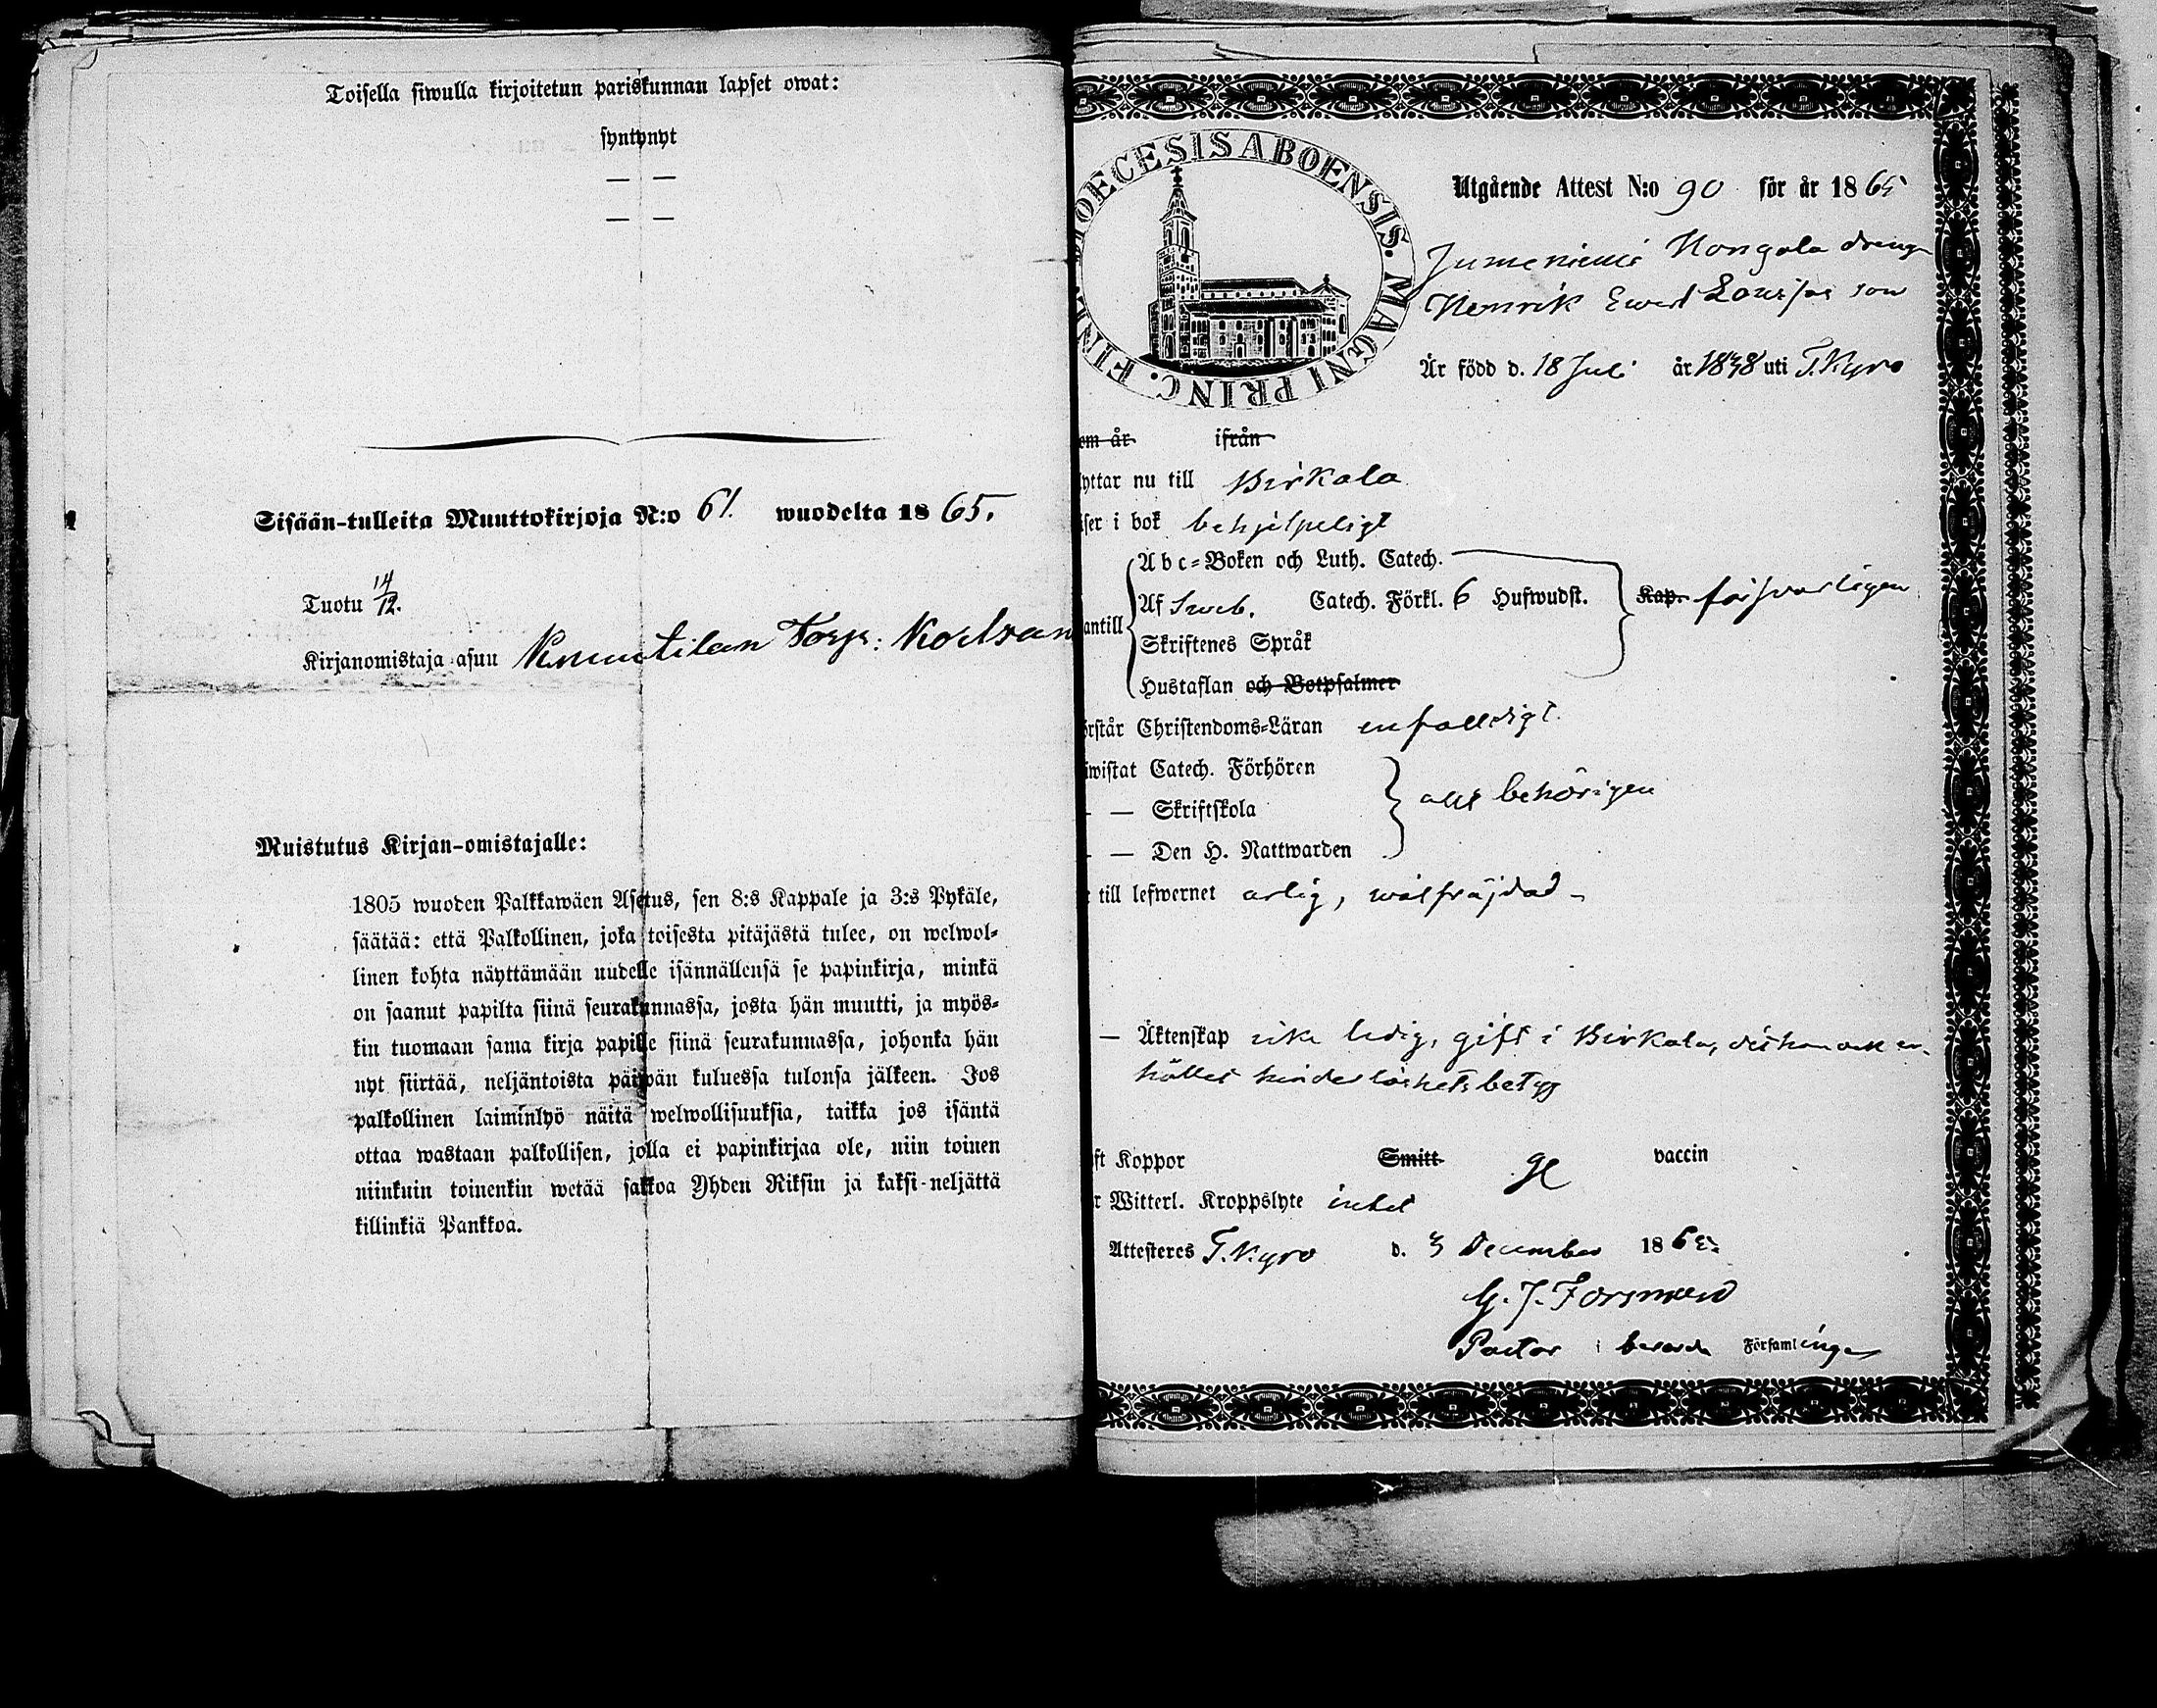 Toisella siwulla kirjoitetun pariskunnan lapset owat:
syntynyt
— —
— —
Sisään-tulleita Muuttokirjoja N:o 61. wuodelta 1865.
Tuotu 14/12.
Kirjanomistaja asuu Knuutilan Torp:
Muistutus Kirjan-omistajalle:
1805 wuoden Palkkawäen Asetus, sen 8:s Kappale ja 3:s Pykäle,
säätää: että Palkollinen, joka toisesta pitäjästä tulee, on welwol-
linen kohta näyttämään uudelle isännällensä se papinkirja, minkä
on saanut papilta siinä seurakunnassa, josta hän muutti, ja myös-
kin tuomaan sama kirja papille siinä seurakunnassa, johonka hän
nyt siirtää, neljäntoista päiwän kuluessa tulonsa jälkeen. Jos
palkollinen laiminlyö näitä welwollisuuksia, taikka jos isäntä
ottaa wastaan palkollisen, jolla ei papinkirjaa ole, niin toinen
niinkuin toinenkin wetää sakkoa Yhden Riksin ja kaksi-neljättä
killinkiä Pankkoa.
DIOECESIS ABOENSIS. MAGNI PRINC. FIN
Utgående Attest N:o 90 för år 1865
Jumeniemi Kongola dreng
Henrik Ewert son
Är född d. 18 Juli år 1838 uti T.Kyro
om år ifrån
yttar nu till Birkala
äser i bok behjelpeligt
Abc-Boken och Luth. Catech.
Af Sweb. Catech. Förkl. 6 Hufwudst. Kap. försvarligen
antill
Skriftenes Språk
Hustaflan och Botpsalmer
örstår Christendoms-Läran enfalldigt.
iwistat Catech. Förhören
— — Skriftskola allt behörigen
— — Den H. Nattwarden
till lefwernet ärlig, wälfräjdad -
— Äktenskap icke ledig, gift i Birkala, dit han ock er-
hållit hinderlöshetsbetyg
ft Koppor Smitt ge vaccin
r Witterl. Kroppslyte intet
Attesteres T.Kyro d. 3 December 1865.
G. J. Forsman
Pastor i berörda Församlingen